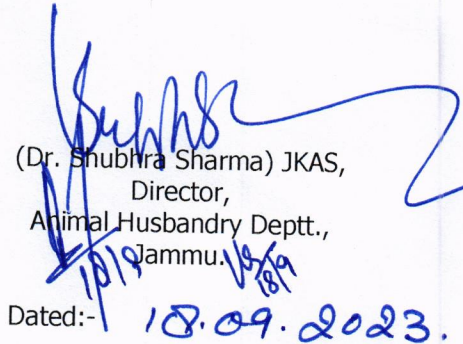 (Dr. Shubhra Sharma) JKAS,
Director,
Animal Husbandry Deptt.,
Jammu.
18/9
18/9
Dated:- 18.09.2023.